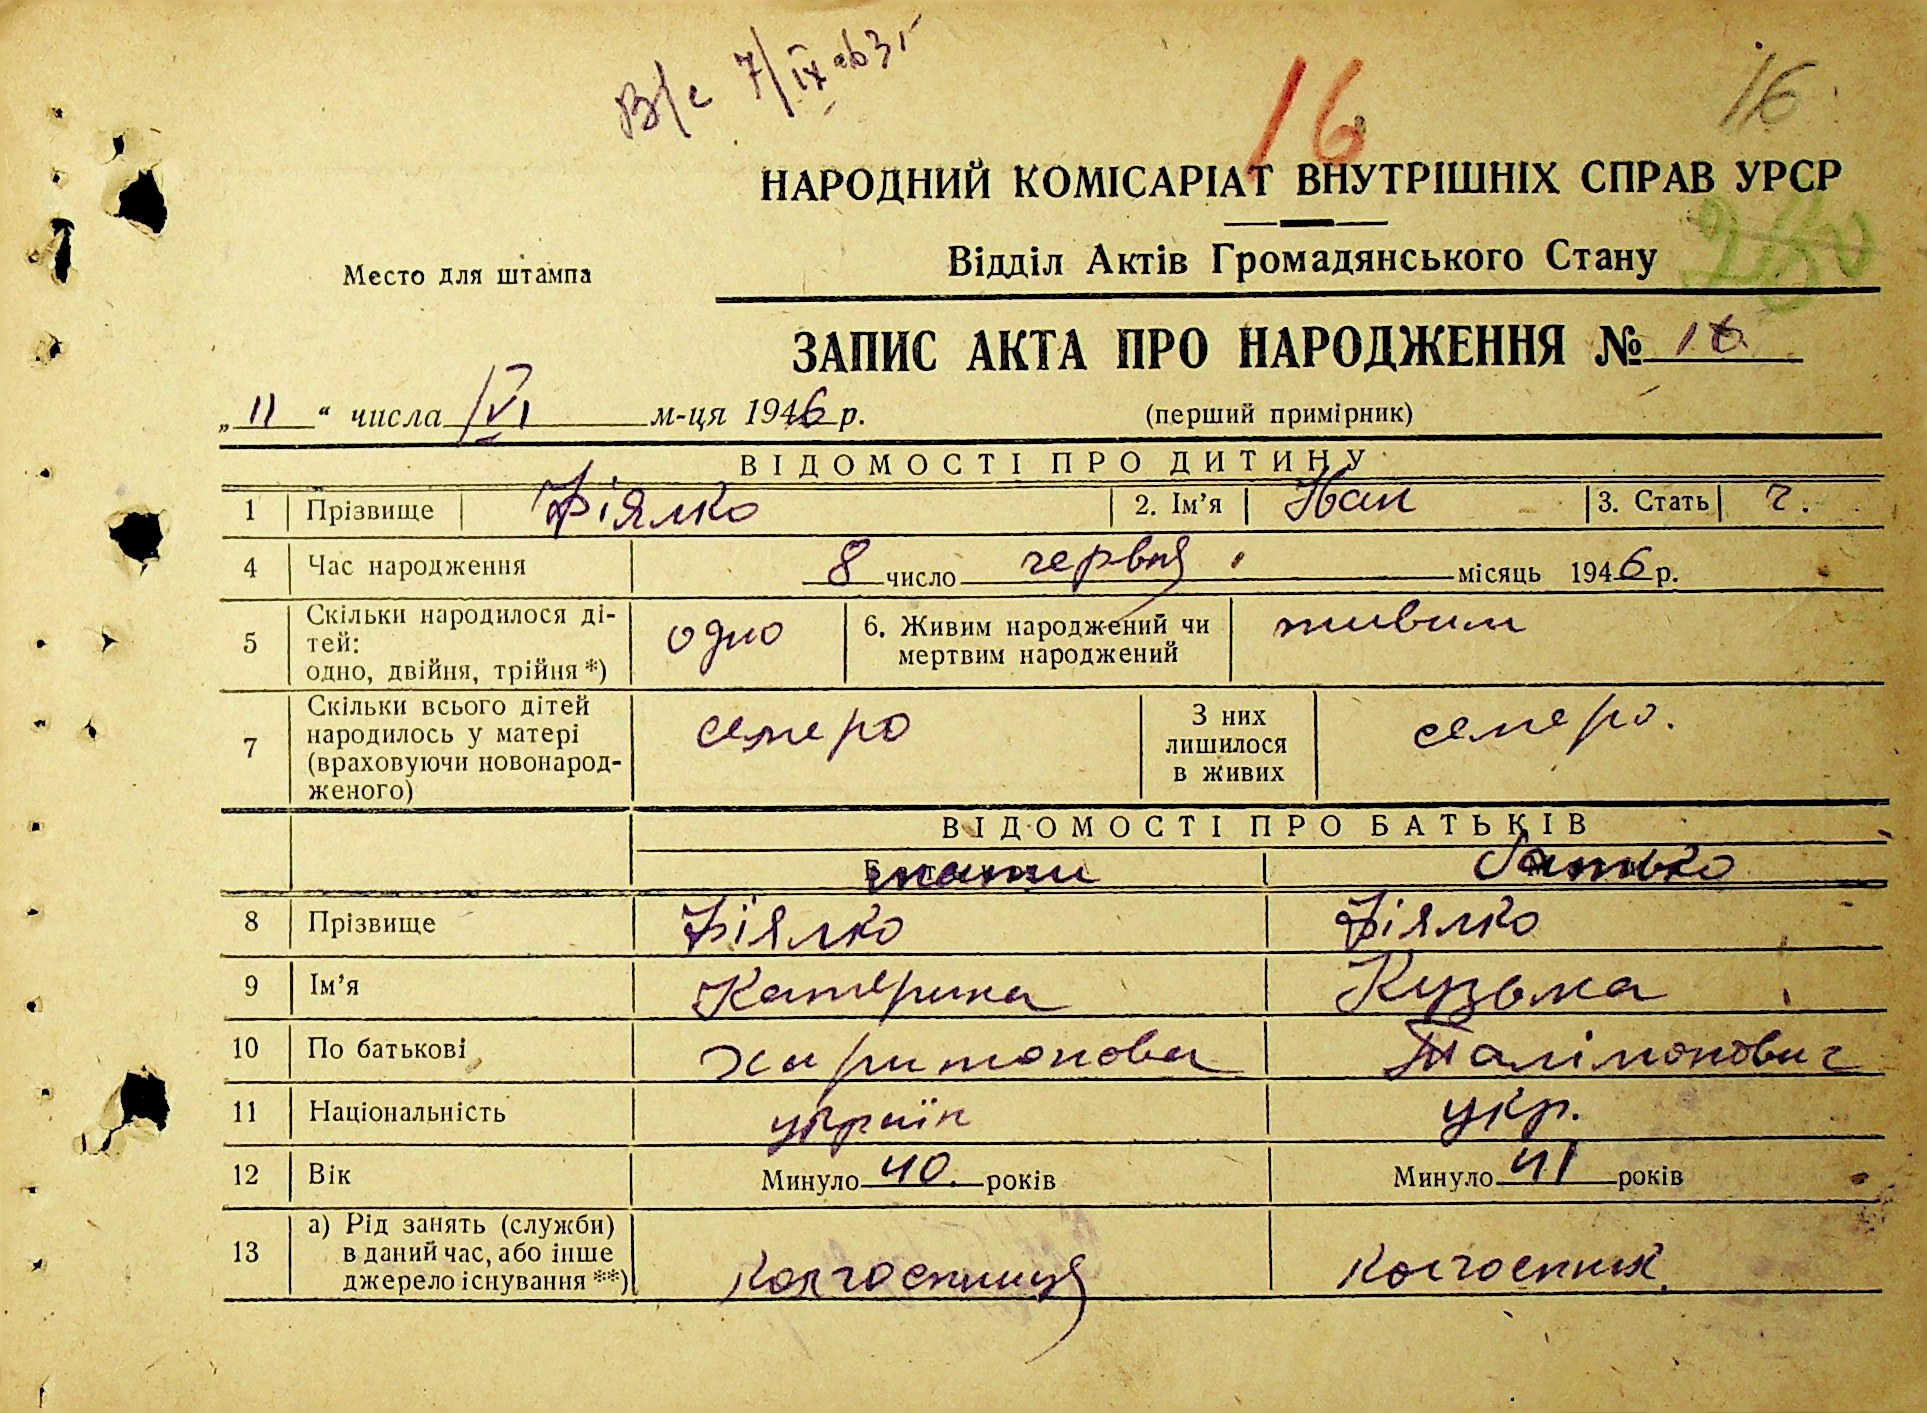 В/с 7/IX
16 16
НАРОДНИЙ КОМІСАРІАТ ВНУТРІШНІХ СПРАВ УРСР
Відділ Актів Громадянського Стану
Место для штампа
ЗАПИС АКТА ПРО НАРОДЖЕННЯ № 16
„11“ числа VI м-ця 1946 р. (перший примірник)
ВІДОМОСТІ ПРО ДИТИНУ
1 Прізвище Фіялко 2. Ім’я Іван 3. Стать ч.
4 Час народження 8 число червня місяць 1946 р.
5 Скільки народилося ді-
тей:
одно, двійня, трійня *) одно 6. Живим народжений чи
мертвим народжений живим
7 Скільки всього дітей
народилось у матері
(враховуючи новонарод-
женого) семеро З них
лишилося
в живих семеро.
ВІДОМОСТІ ПРО БАТЬКІВ
мати батько
8 Прізвище Фіялко Фіялко
9 Ім’я Катерина Кузьма
10 По батькові Харитонова Талімонович
11 Національність україн укр.
12 Вік Минуло 40. років Минуло 41 років
13 а) Рід занять (служби)
в даний час, або інше
джерело існування **) Колгоспниця Колгоспник.